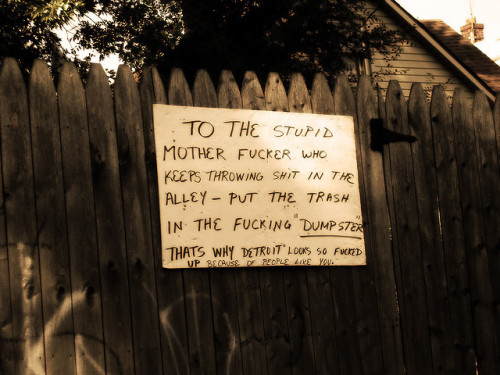 TO THE STUPID
MOTHER FUCKER WHO
KEEPS THROWING SHIT IN THE
ALLEY - PUT THE TRASH
IN THE FUCKING "DUMPSTER"
THATS WHY DETROIT LOOKS SO FUCKED
UP BECAUSE OF PEOPLE LIKE YOU.